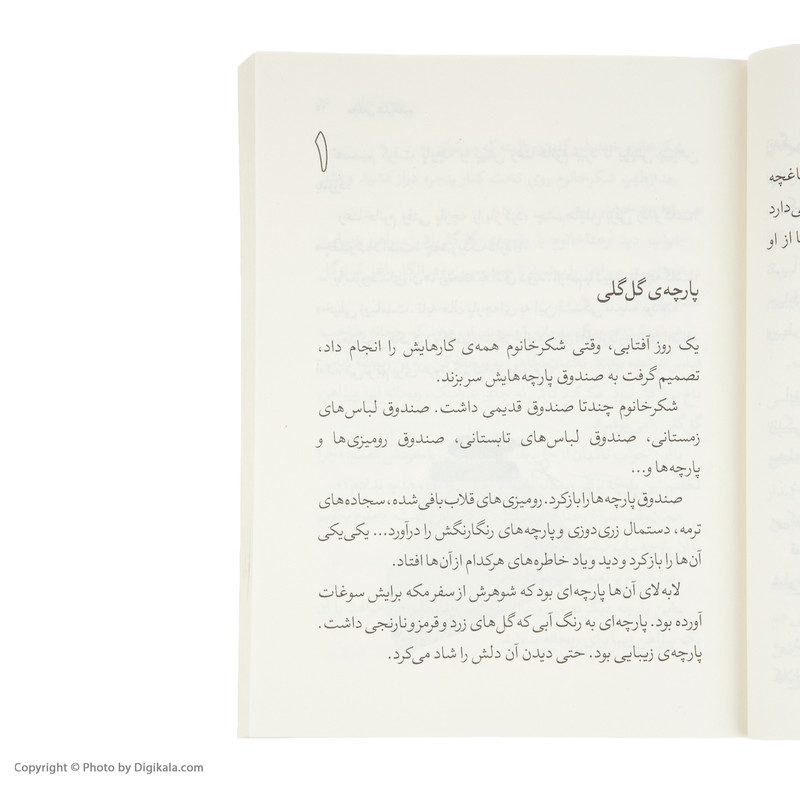 ۱
پارچه‌ی گل‌گلی
یک روز آفتابی، وقتی شکرخانوم همه‌ی کارهایش را انجام داد،
تصمیم گرفت به صندوق پارچه‌هایش سر بزند.
شکرخانوم چندتا صندوق قدیمی داشت. صندوق لباس‌های
زمستانی، صندوق لباس‌های تابستانی، صندوق رومیزی‌ها و
پارچه‌ها و...
صندوق پارچه‌ها را باز کرد. رومیزی‌های قلاب‌بافی شده، سجاده‌های
ترمه، دستمال زری‌دوزی و پارچه‌های رنگارنگش را درآورد... یکی‌یکی
آن‌ها را باز کرد و دید و یاد خاطره‌های هرکدام از آن‌ها افتاد.
لابه‌لای آن‌ها پارچه‌ای بود که شوهرش از سفر مکه برایش سوغات
آورده بود. پارچه‌ای به رنگ آبی که گل‌های زرد و قرمز و نارنجی داشت.
پارچه‌ی زیبایی بود. حتی دیدن آن دلش را شاد می‌کرد.
Copyright © Photo by Digikala.com